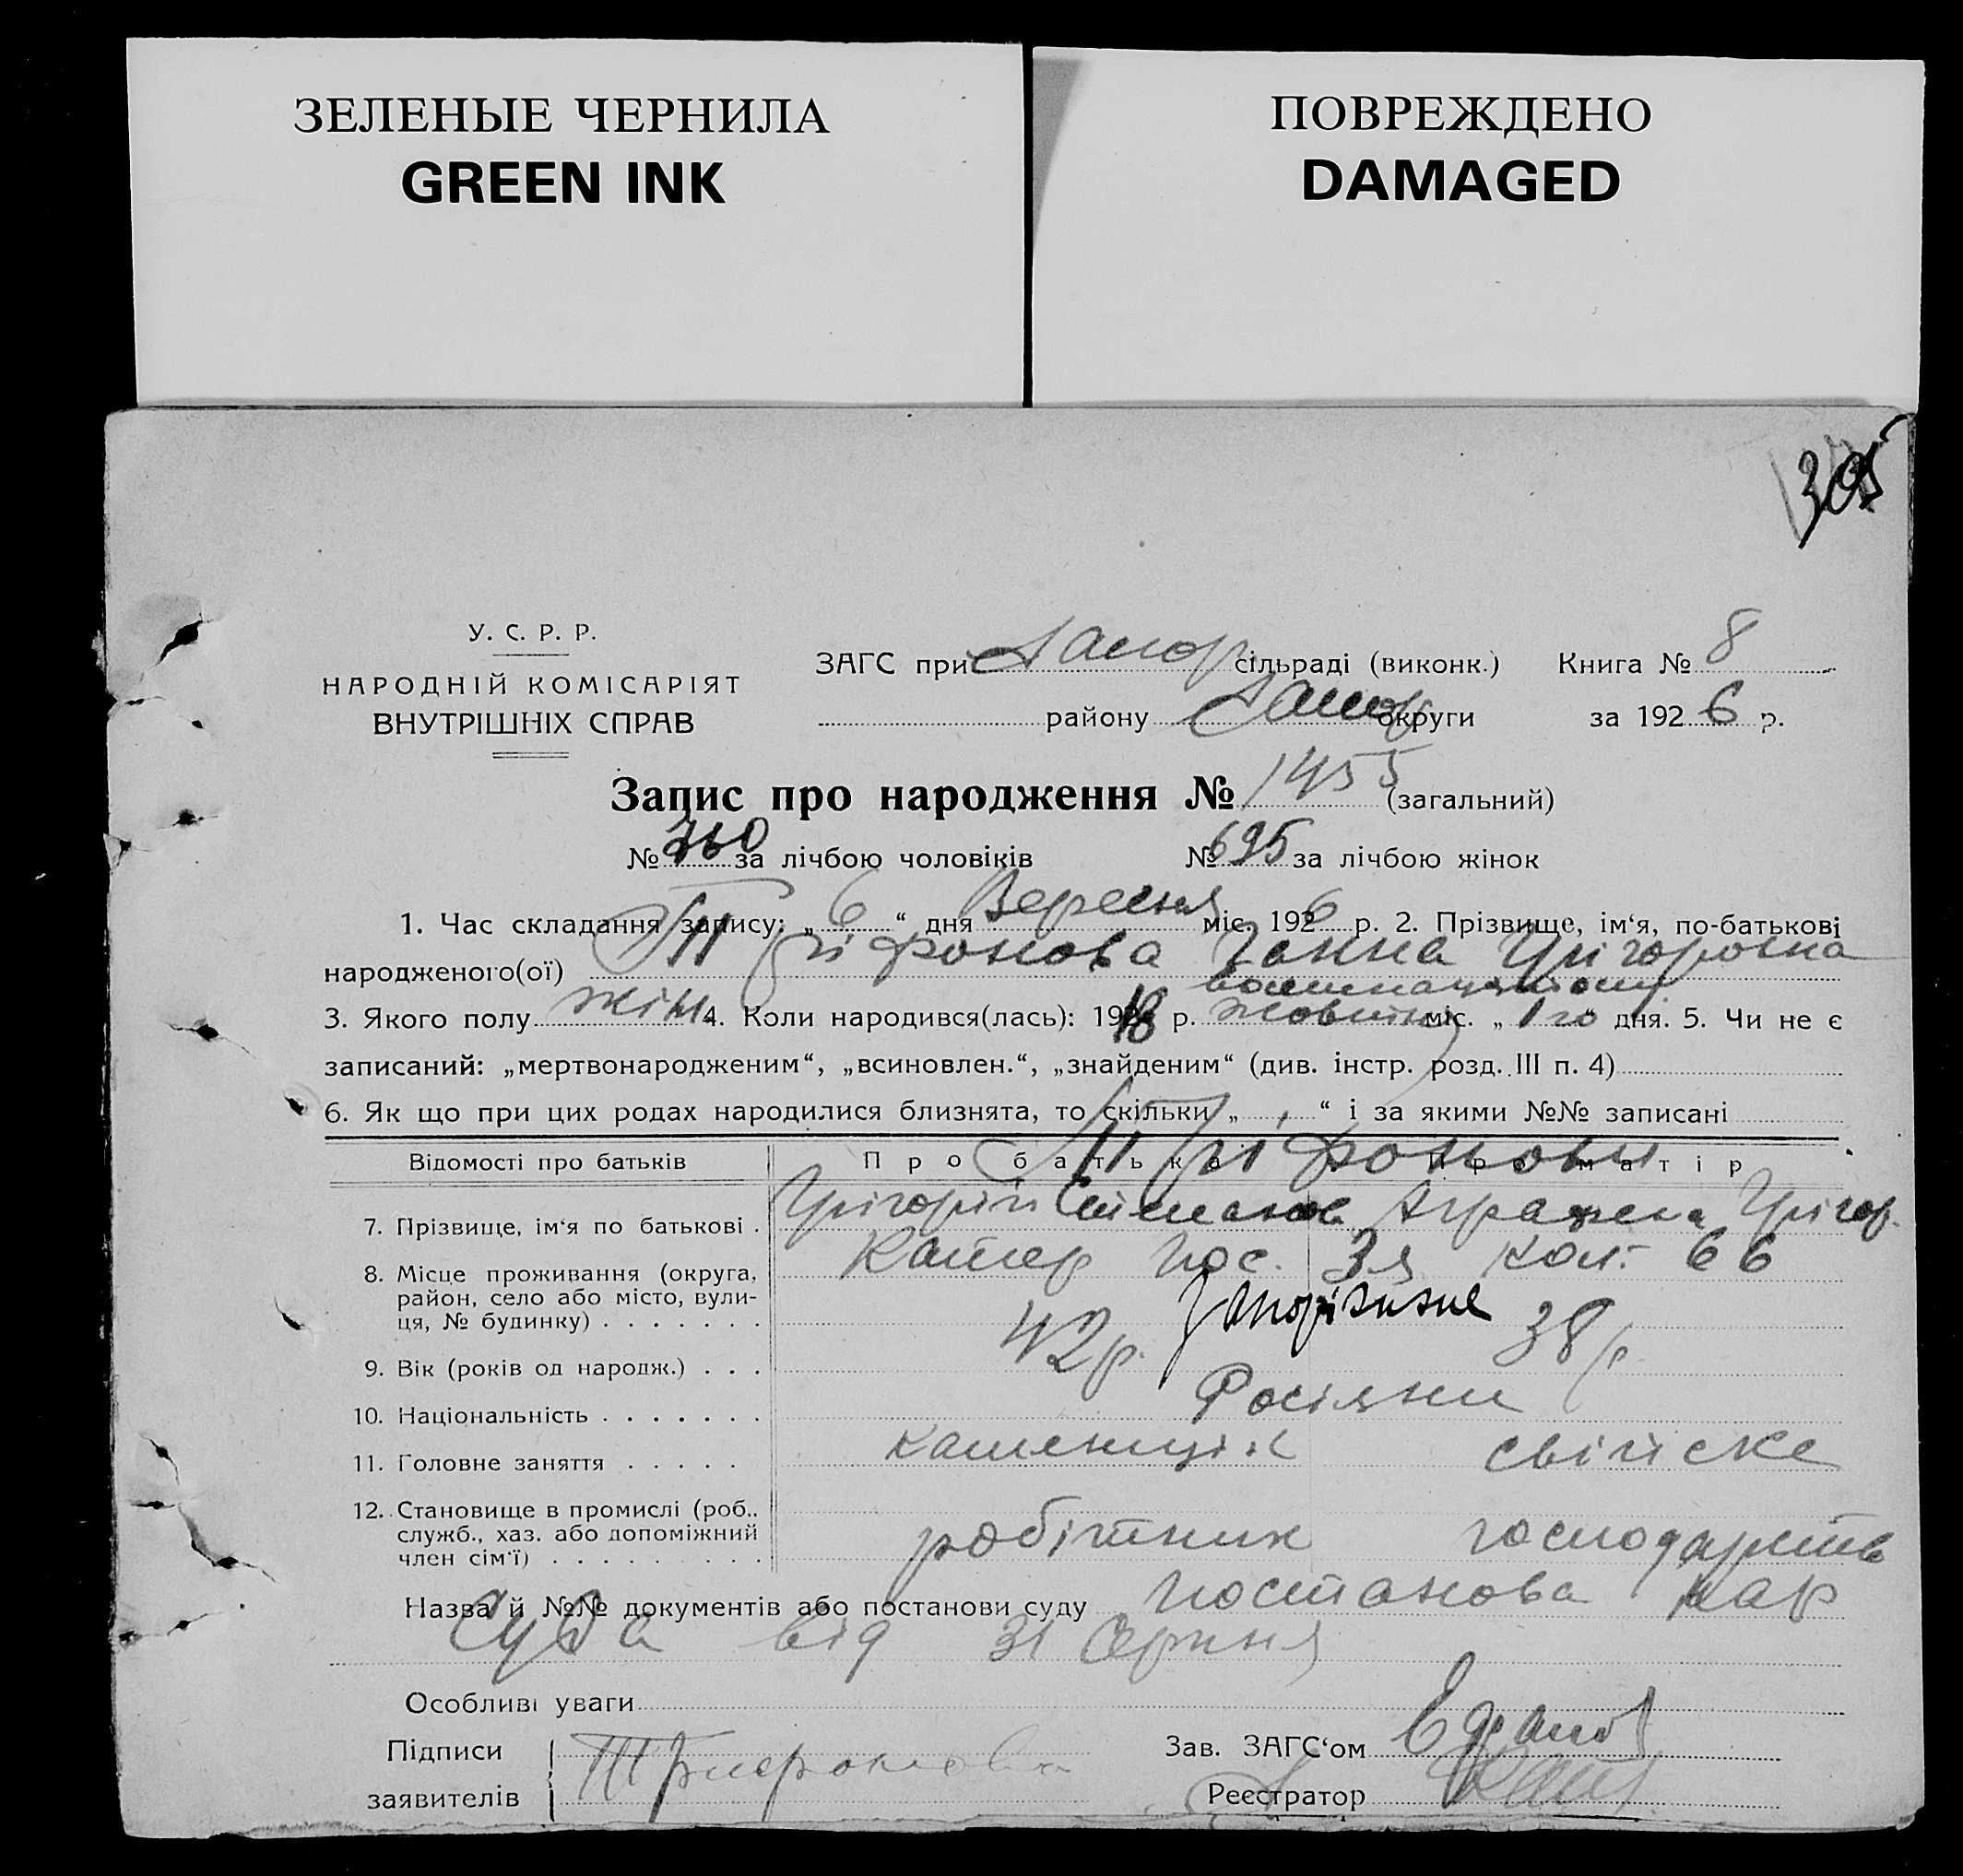 ЗЕЛЕНЫЕ ЧЕРНИЛА
GREEN INK
ПОВРЕЖДЕНО
DAMAGED
305
У. С. Р. Р.
НАРОДНІЙ КОМІСАРІЯТ
ВНУТРІШНІХ СПРАВ
ЗАГС при Запор сільраді (виконк.) Книга № 8
району Запор округи за 1926 р.
Запис про народження № 1455 (загальний)
№ 760 за лічбою чоловіків № 695 за лічбою жінок
1. Час складання запису: „ 6 “ дня Вересня міс. 1926 р. 2. Прізвище, ім‘я, по-батькові
народженого(ої) Тріфонова Ганна Грігоровна
3. Якого полу жін. 4. Коли народився(лась): 1918 р. жовтня міс. „ 1го “ дня. 5. Чи не є
записаний: „мертвонародженим“, „всиновлен.“, „знайденим“ (див. інстр. розд. III п. 4)
6. Як що при цих родах народилися близнята, то скільки „ “ і за якими №№ записані
Відомості про батьків Про батька Про матір
Тріфонови
7. Прізвище, ім‘я по батькові . Грігорій Степанов Аграфена Грігор.
8. Місце проживання (округа, район, село або місто, вулиця, № будинку) . . . . . . . Катер пос. 3я кол. 66
Запоріжжє
9. Вік (років од народж.) . . . 42р. 38р.
10. Національність . . . . . . . Росіяни
11. Головне заняття . . . . . каменщік свійске
12. Становище в промислі (роб., служб., хаз. або допоміжний член сім‘ї) . . . . . . . . . робітник господарство
Назва й №№ документів або постанови суду постанова нар
Суда від 31 Серпня
Особливі уваги
Підписи заявителів Трифонова
Зав. ЗАГС‘ом
Реєстратор